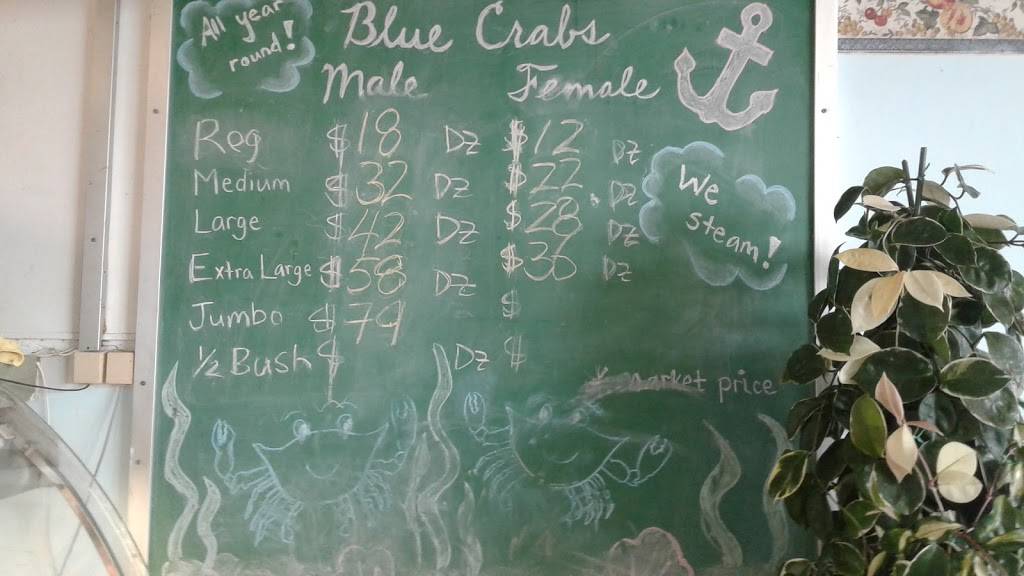 All year
round!
Blue Crabs
Male Female
Reg $18 Dz $12 Dz
Medium $32 Dz $22 Dz
Large $42 Dz $28 Dz
Extra Large $58 Dz $36 Dz
Jumbo $79 $
1/2 Bush $ Dz $
We
steam!
* market price